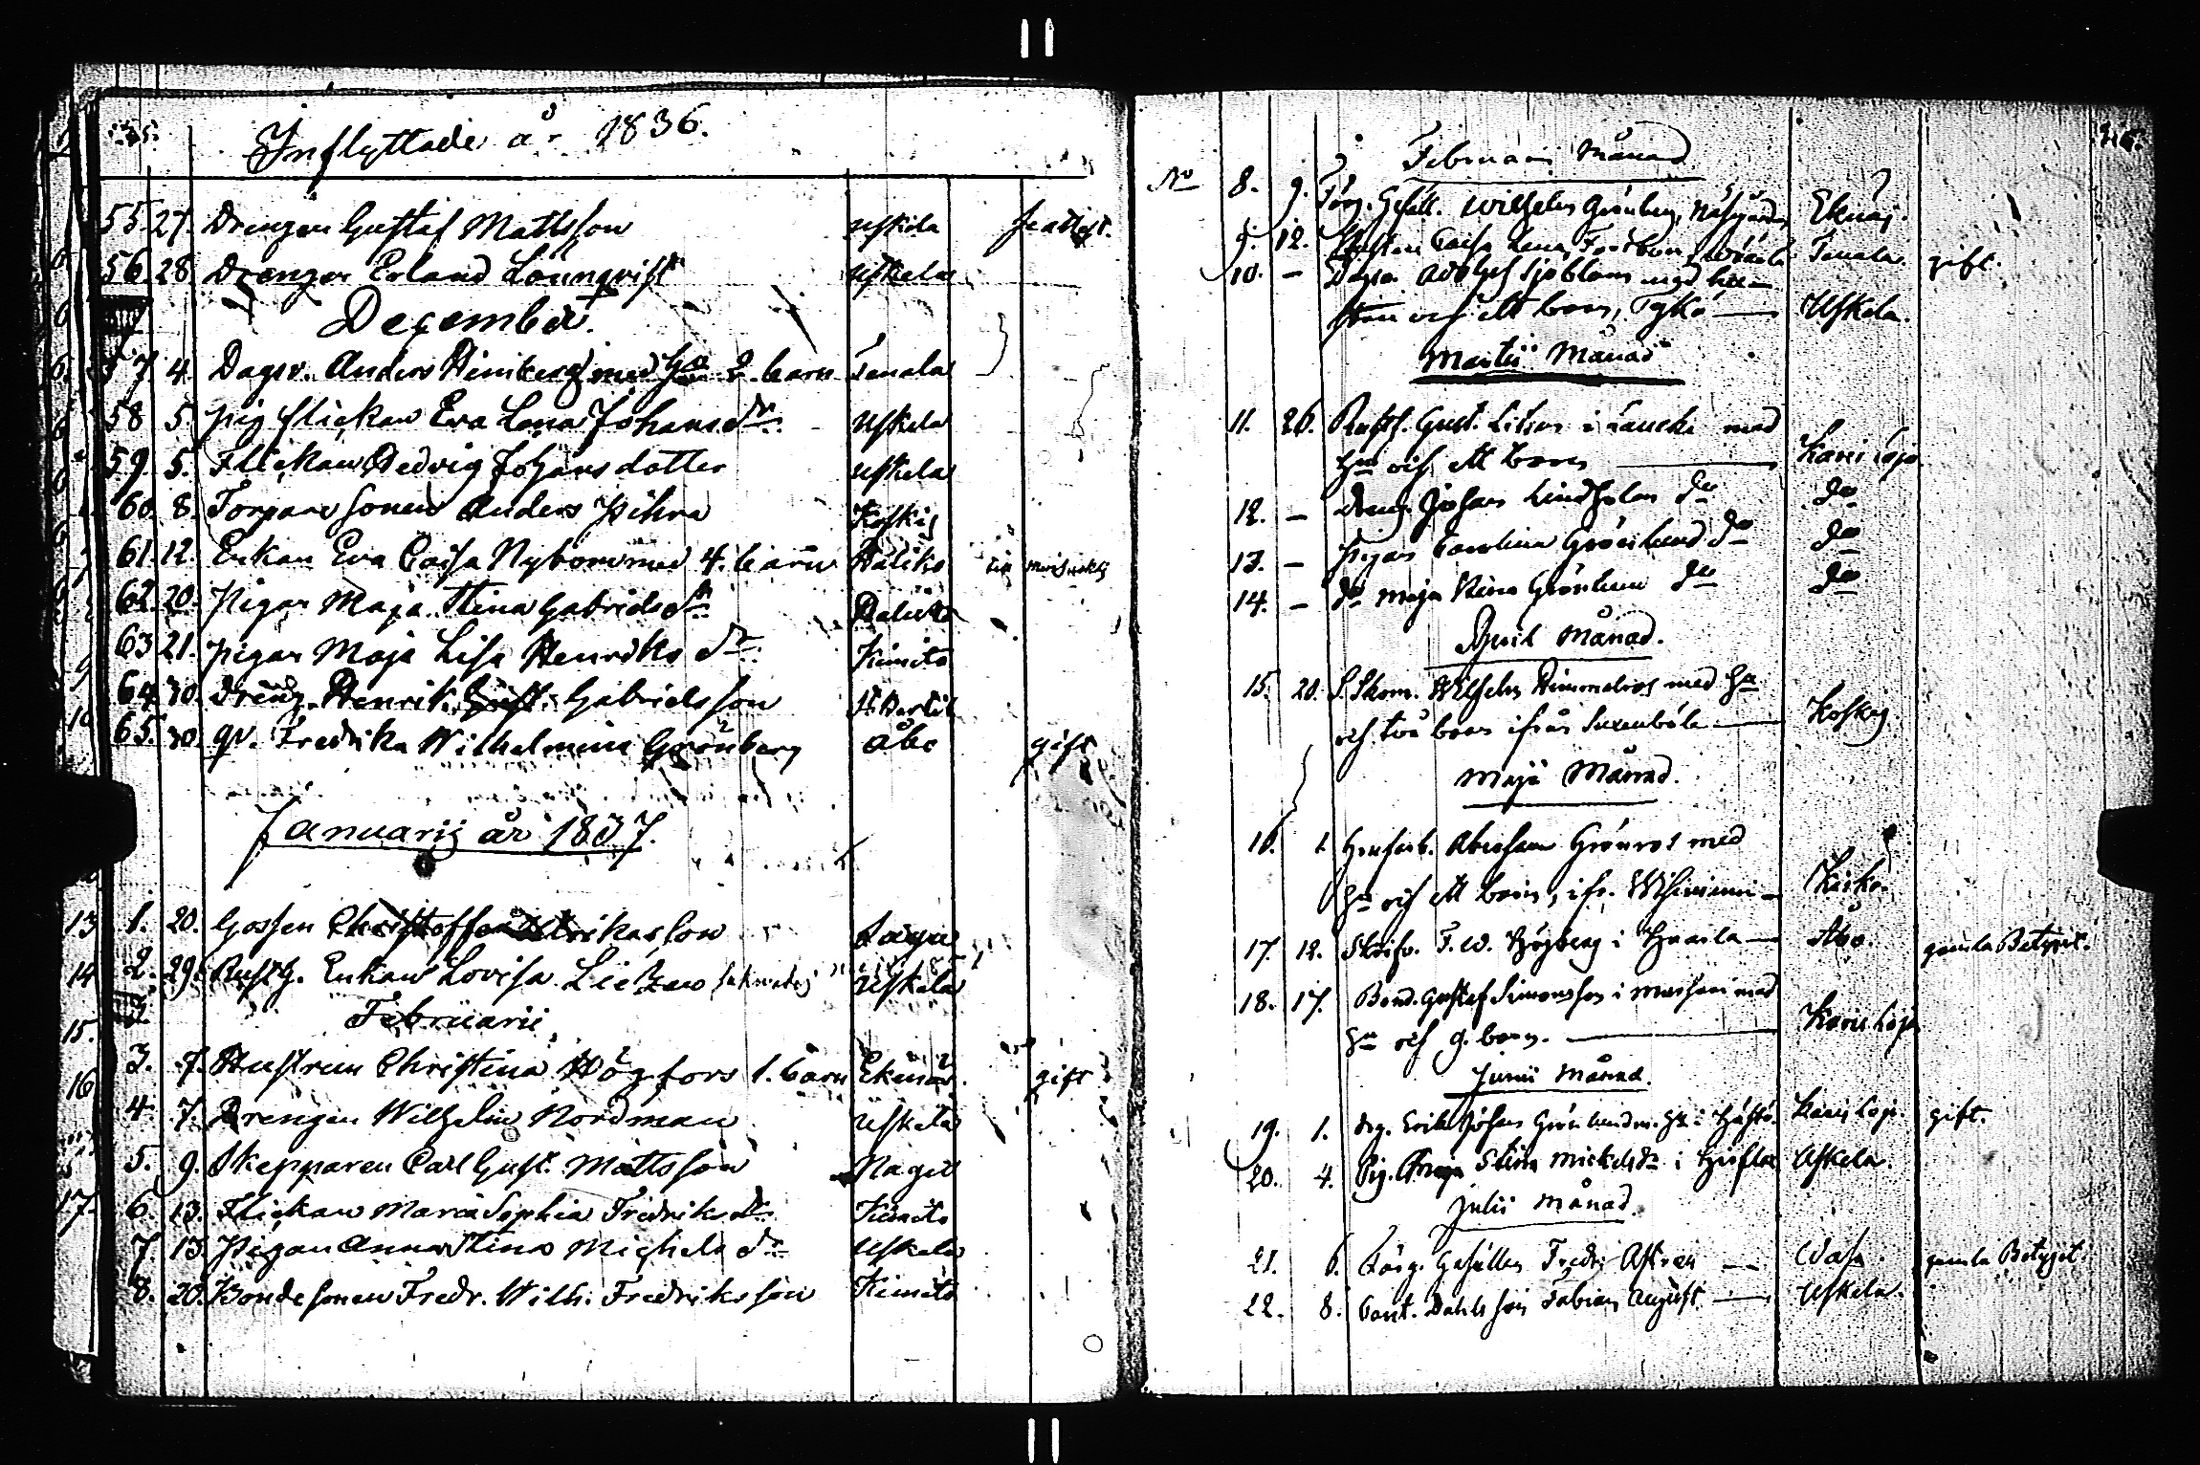 Inflyttade år 1836.
55 27. Drengen Gustaf Mattsson Uskela
56 28 Drengen Erland Lönnqvist Uskela
December.
57 4 Dagsv. Anders Heinberg med hu 2. barn Tenala
58 5. pig flickan Eva Lena Johans dr. Uskela
59. 5. Flickan Hedvig Johans dotter Uskela
60. 8. Torpare sonen Anders Pihra Koskis
61. 12. Enkan Eva Caisa Nybom med 4. barn Haliko
62. 20. Pigan Maja Stina Gabriels dr Haliko
63 21. pigan Maja Lisa Henriks dr. Kimito
64. 30. Dreng. Henrik Gust. Gabriels son St Bertils
65. 30. qv. Fredrika Wilhelmina Grönberg Åbo gift
Januarij år 1837.
1. 20. Gossen Christoffer Eriksson Sagu
2. 29. Rusth. Enkan Lovisa Lietzen Uskela
Februarii
3. 7. Hustrun Christina Högfors 1. barn Ekenäs. gift
4. 7. Drengen Wilhelm Nordman Uskela
5. 9. Skepparen Carl Gust. Mattsson Nagu
6. 13. Flickan Maria Sophia Fredriks dr Kimito
7. 13. Pigan Anna Stina Michels dr Uskela
8. 20. Bonde sonen Fredr. Wilh. Fredriks son Kimito
Februari Månad
No 8. 9. Färg. Gesäll. Wilhelm Grönberg, Näsgården, Ekenäs.
9. 12. Caisa Lena Tenala. gift.
10. – Adolph Sjöblom med hu-
strun och ett barn, Tykö — Uskela.
Martii Månad
11. 26. Rusth. Gust. Litzen i Laucka med
hu och ett barn — Karis Lojo
12. – Dreng. Johan Lindholm do do
13. – Pigan Carolina Grönlund do do
14. – do Maja Stina Grönlund do do
April Månad.
15. 20. S. Skom. Wilhelm Himmelros med hu
och två barn ifrån — Koskis
Maji Månad.
16. 1. Abraham Grönros med
hu och ett barn, ifr. — Kisko.
17. 12. Skrifv. F. W. Högberg i — Åbo. gamla Betyget.
18. 17. Bond. Gustaf Simonsson i med
hu och 9. barn. — Karis Lojo
Junii Månad.
19. 1. Drg. Erik Johan Grönlund m. hu i Karis Lojo. gift.
20. 4. Pig. Maja Stina Mickels dr i Uskela.
Julii Månad.
21. 6. Färg. Gesällen Fredr. — Wasa gamla Betyget
22. 8. Fabian August — Uskela.